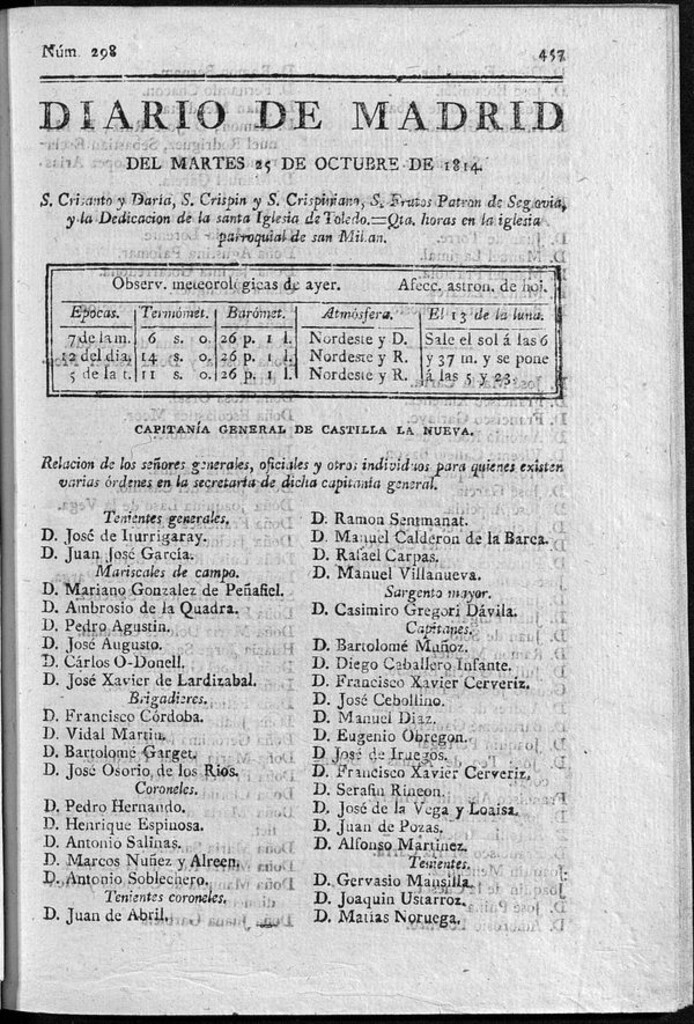 Núm. 298
457
DIARIO DE MADRID
DEL MARTES 25 DE OCTUBRE DE 1814.
S. Crisanto y Daria, S. Crispin y S. Crispiniano, S. Frutos Patron de Segovia,
y la Dedicacion de la santa Iglesia de Toledo.=Qta. horas en la iglesia
parroquial de san Millan.
Observ. meteorológicas de ayer. Afecc. astron. de hoi.
Epocas. Termómet. Barómet. Atmósfera. El 13 de la luna.
7 de la m. 6 s. o. 26 p. 1 l. Nordeste y D. Sale el sol á las 6
12 del dia. 14 s. o. 26 p. 1 l. Nordeste y R. y 37 m. y se pone
5 de la t. 11 s. o. 26 p. 1 l. Nordeste y R. á las 5 y 23.
CAPITANÍA GENERAL DE CASTILLA LA NUEVA.
Relacion de los señores generales, oficiales y otros individuos para quienes existen
varias órdenes en la secretaría de dicha capitanía general.
Tenientes generales.
D. José de Iturrigaray.
D. Juan José García.
Mariscales de campo.
D. Mariano Gonzalez de Peñafiel.
D. Ambrosio de la Quadra.
D. Pedro Agustin.
D. José Augusto.
D. Cárlos O-Donell.
D. José Xavier de Lardizabal.
Brigadieres.
D. Francisco Córdoba.
D. Vidal Martin.
D. Bartolomé Garget.
D. José Osorio de los Rios.
Coroneles.
D. Pedro Hernando.
D. Henrique Espinosa.
D. Antonio Salinas.
D. Marcos Nuñez y Alreen.
D. Antonio Soblechero.
Tenientes coroneles.
D. Juan de Abril.
D. Ramon Sentmanat.
D. Manuel Calderon de la Barca.
D. Rafael Carpas.
D. Manuel Villanueva.
Sargento mayor.
D. Casimiro Gregori Dávila.
Capitanes.
D. Bartolomé Muñoz.
D. Diego Caballero Infante.
D. Francisco Xavier Cerveriz.
D. José Cebollino.
D. Manuel Diaz.
D. Eugenio Obregon.
D. José de Iruegos.
D. Francisco Xavier Cerveriz.
D. Serafin Rincon.
D. José de la Vega y Loaisa.
D. Juan de Pozas.
D. Alfonso Martinez.
Tenientes.
D. Gervasio Mansilla.
D. Joaquin Ustarroz.
D. Matias Noruega.